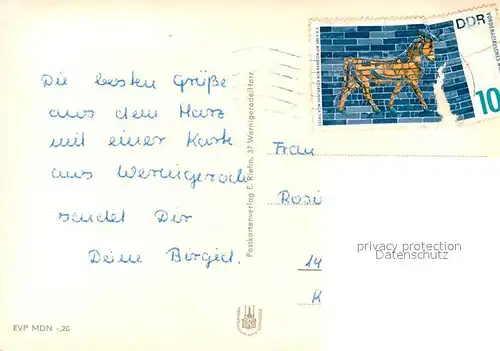 Die besten Grüße
aus dem Harz
mit einer Karte
aus Wernigerode
sendet Dir
Deine Birgit.
EVP MDN -,20
Postkartenverlag E. Riehn, 37 Wernigerode/Harz
DDR
10
Frau
Rosi
14
K
privacy protection
Datenschutz